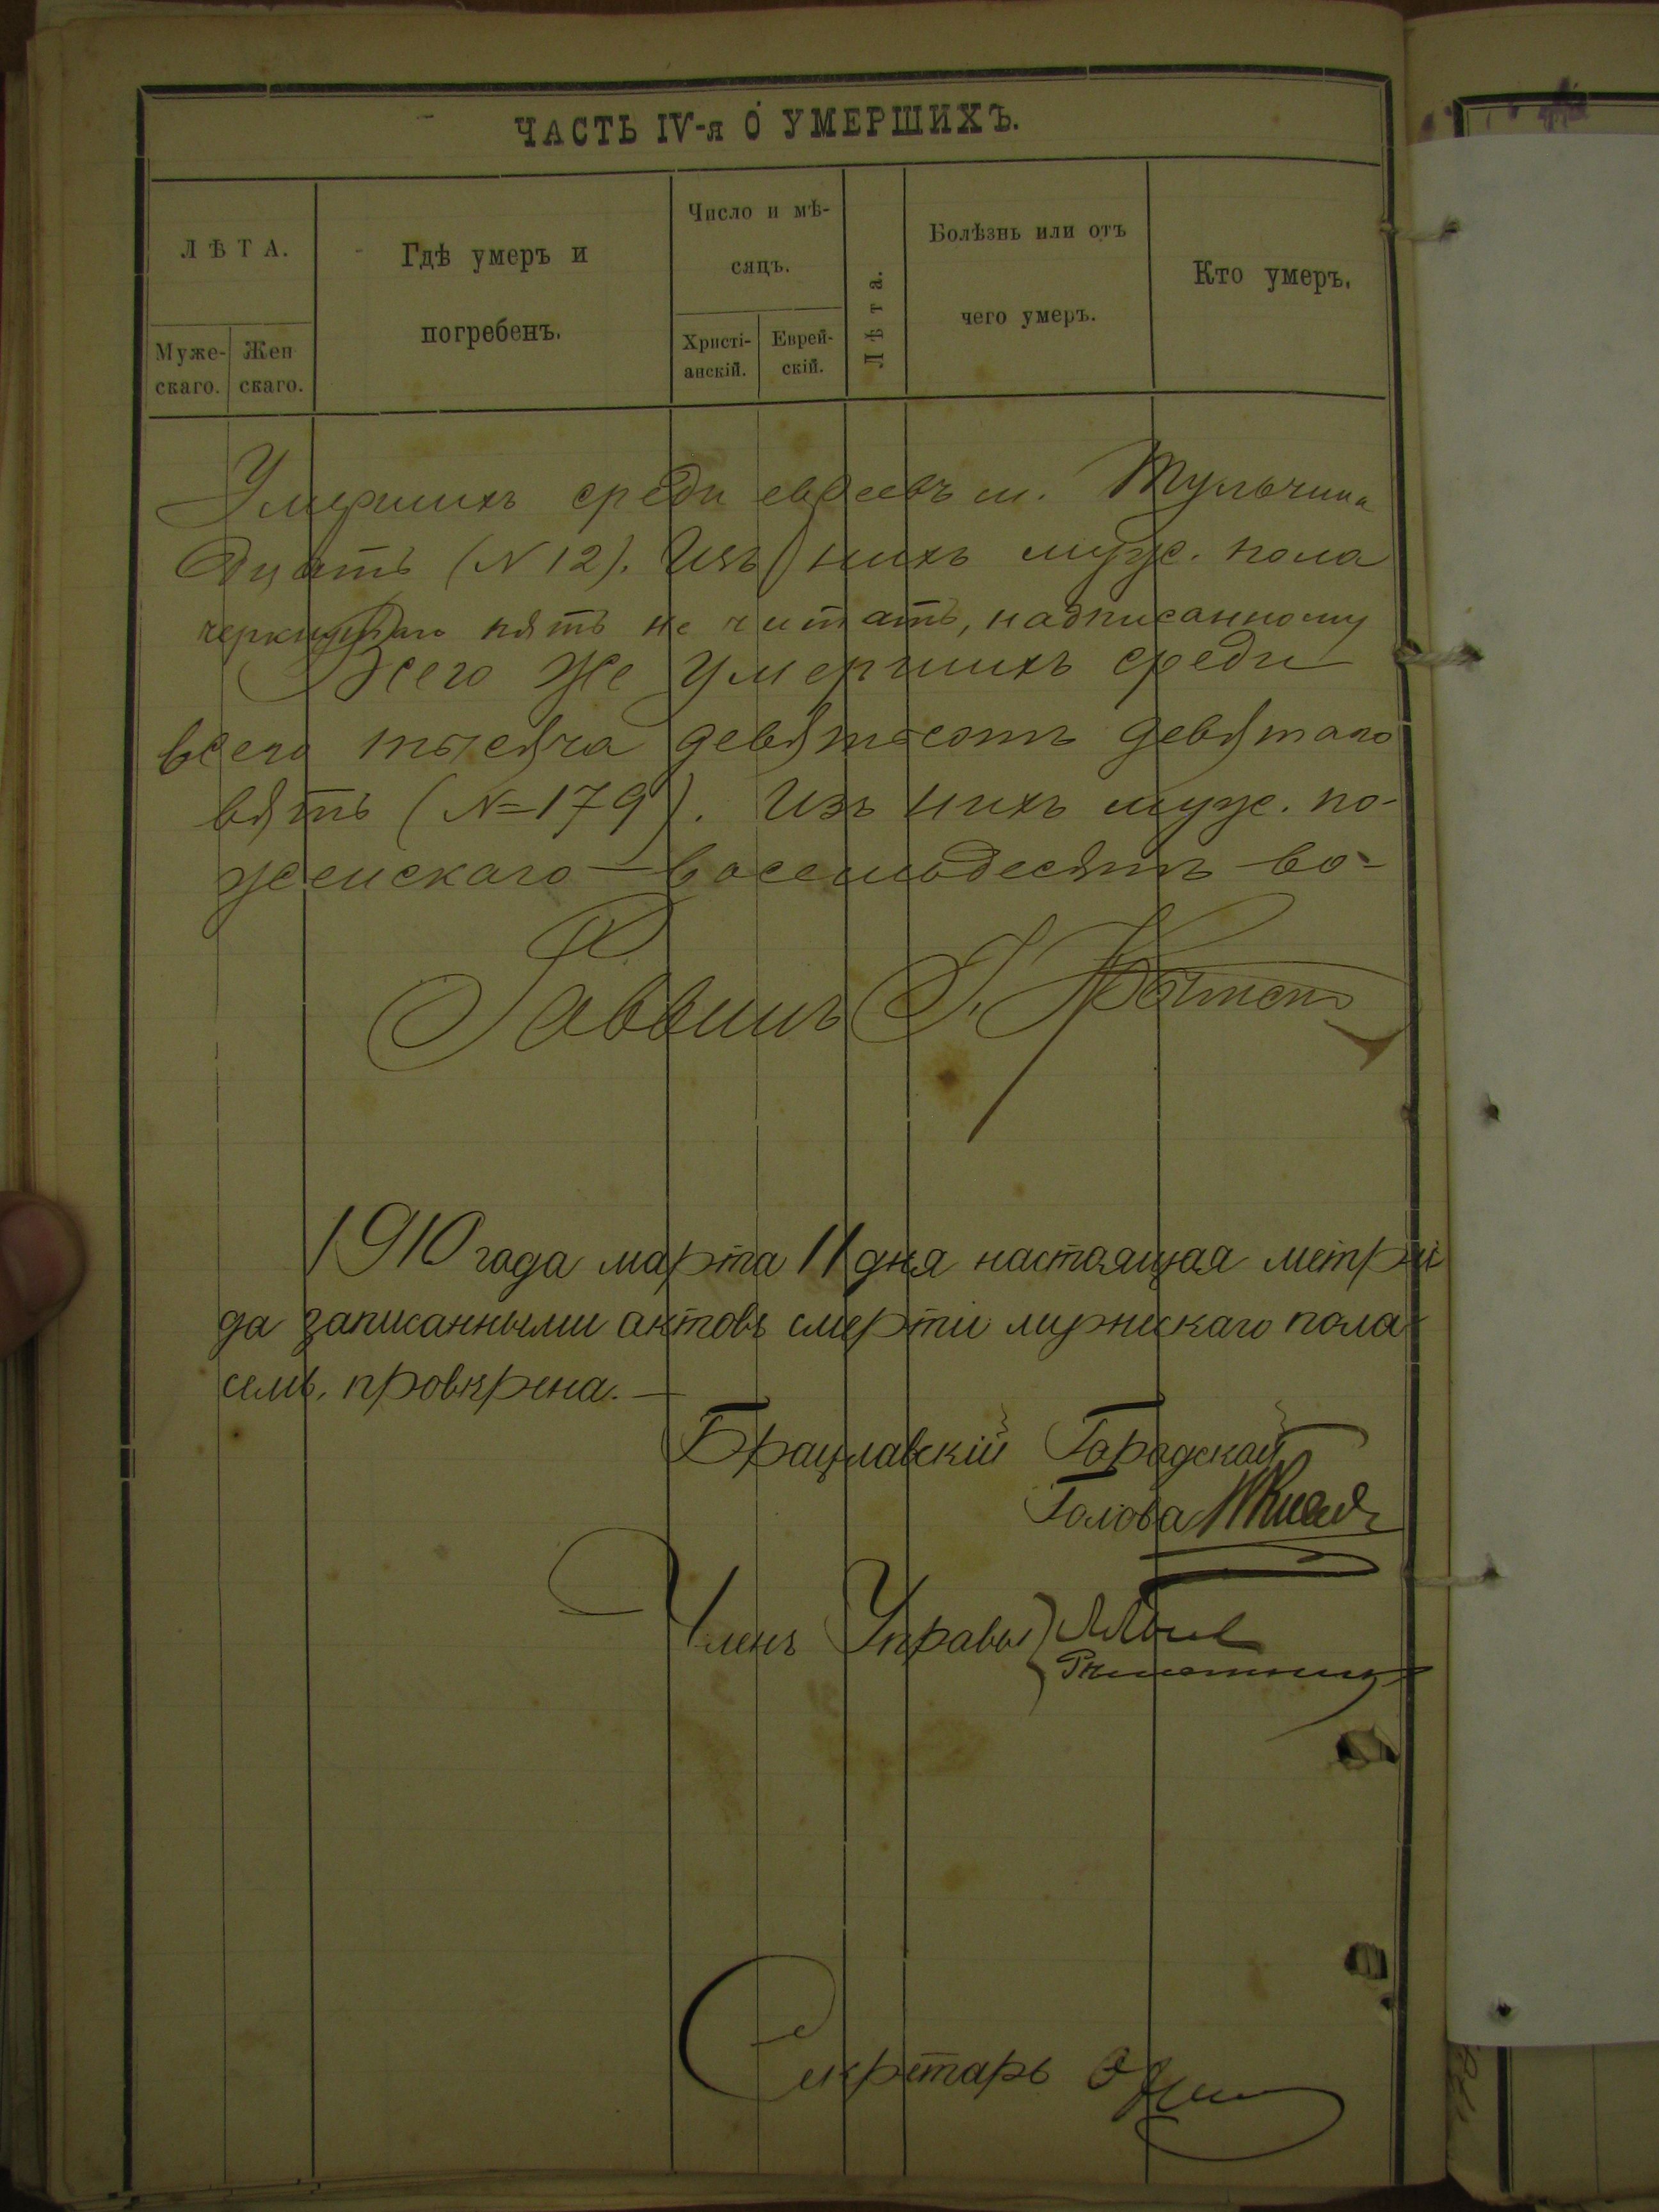 ЧАСТЬ IV-я О УМЕРШИХЪ.
ЛѢТА.
Муже-
скаго.
Жен
скаго.
Гдѣ умеръ и
погребенъ.
Число и мѣ-
сяцъ.
Христі-
анскій.
Еврей-
скій.
Лѣта.
Болѣзнь или отъ
чего умеръ.
Кто умеръ.
Умершихъ среди евреевъ м. Тульчина
дцать (N 12). Изъ нихъ муж. пола
пять не читать, надписанному
Всего же умершихъ среди
всего тысяча девятьсотъ девятаго
вять (N=179). Изъ нихъ муж. по-
женскаго — восемьдесятъ во-
Раввинъ
1910 года марта 11 дня настоящая метри
да записанными актовъ смерти мужескаго пола
семь, провѣрена. —
Брацлавскій Городской
Голова
Членъ Управы
Секретарь